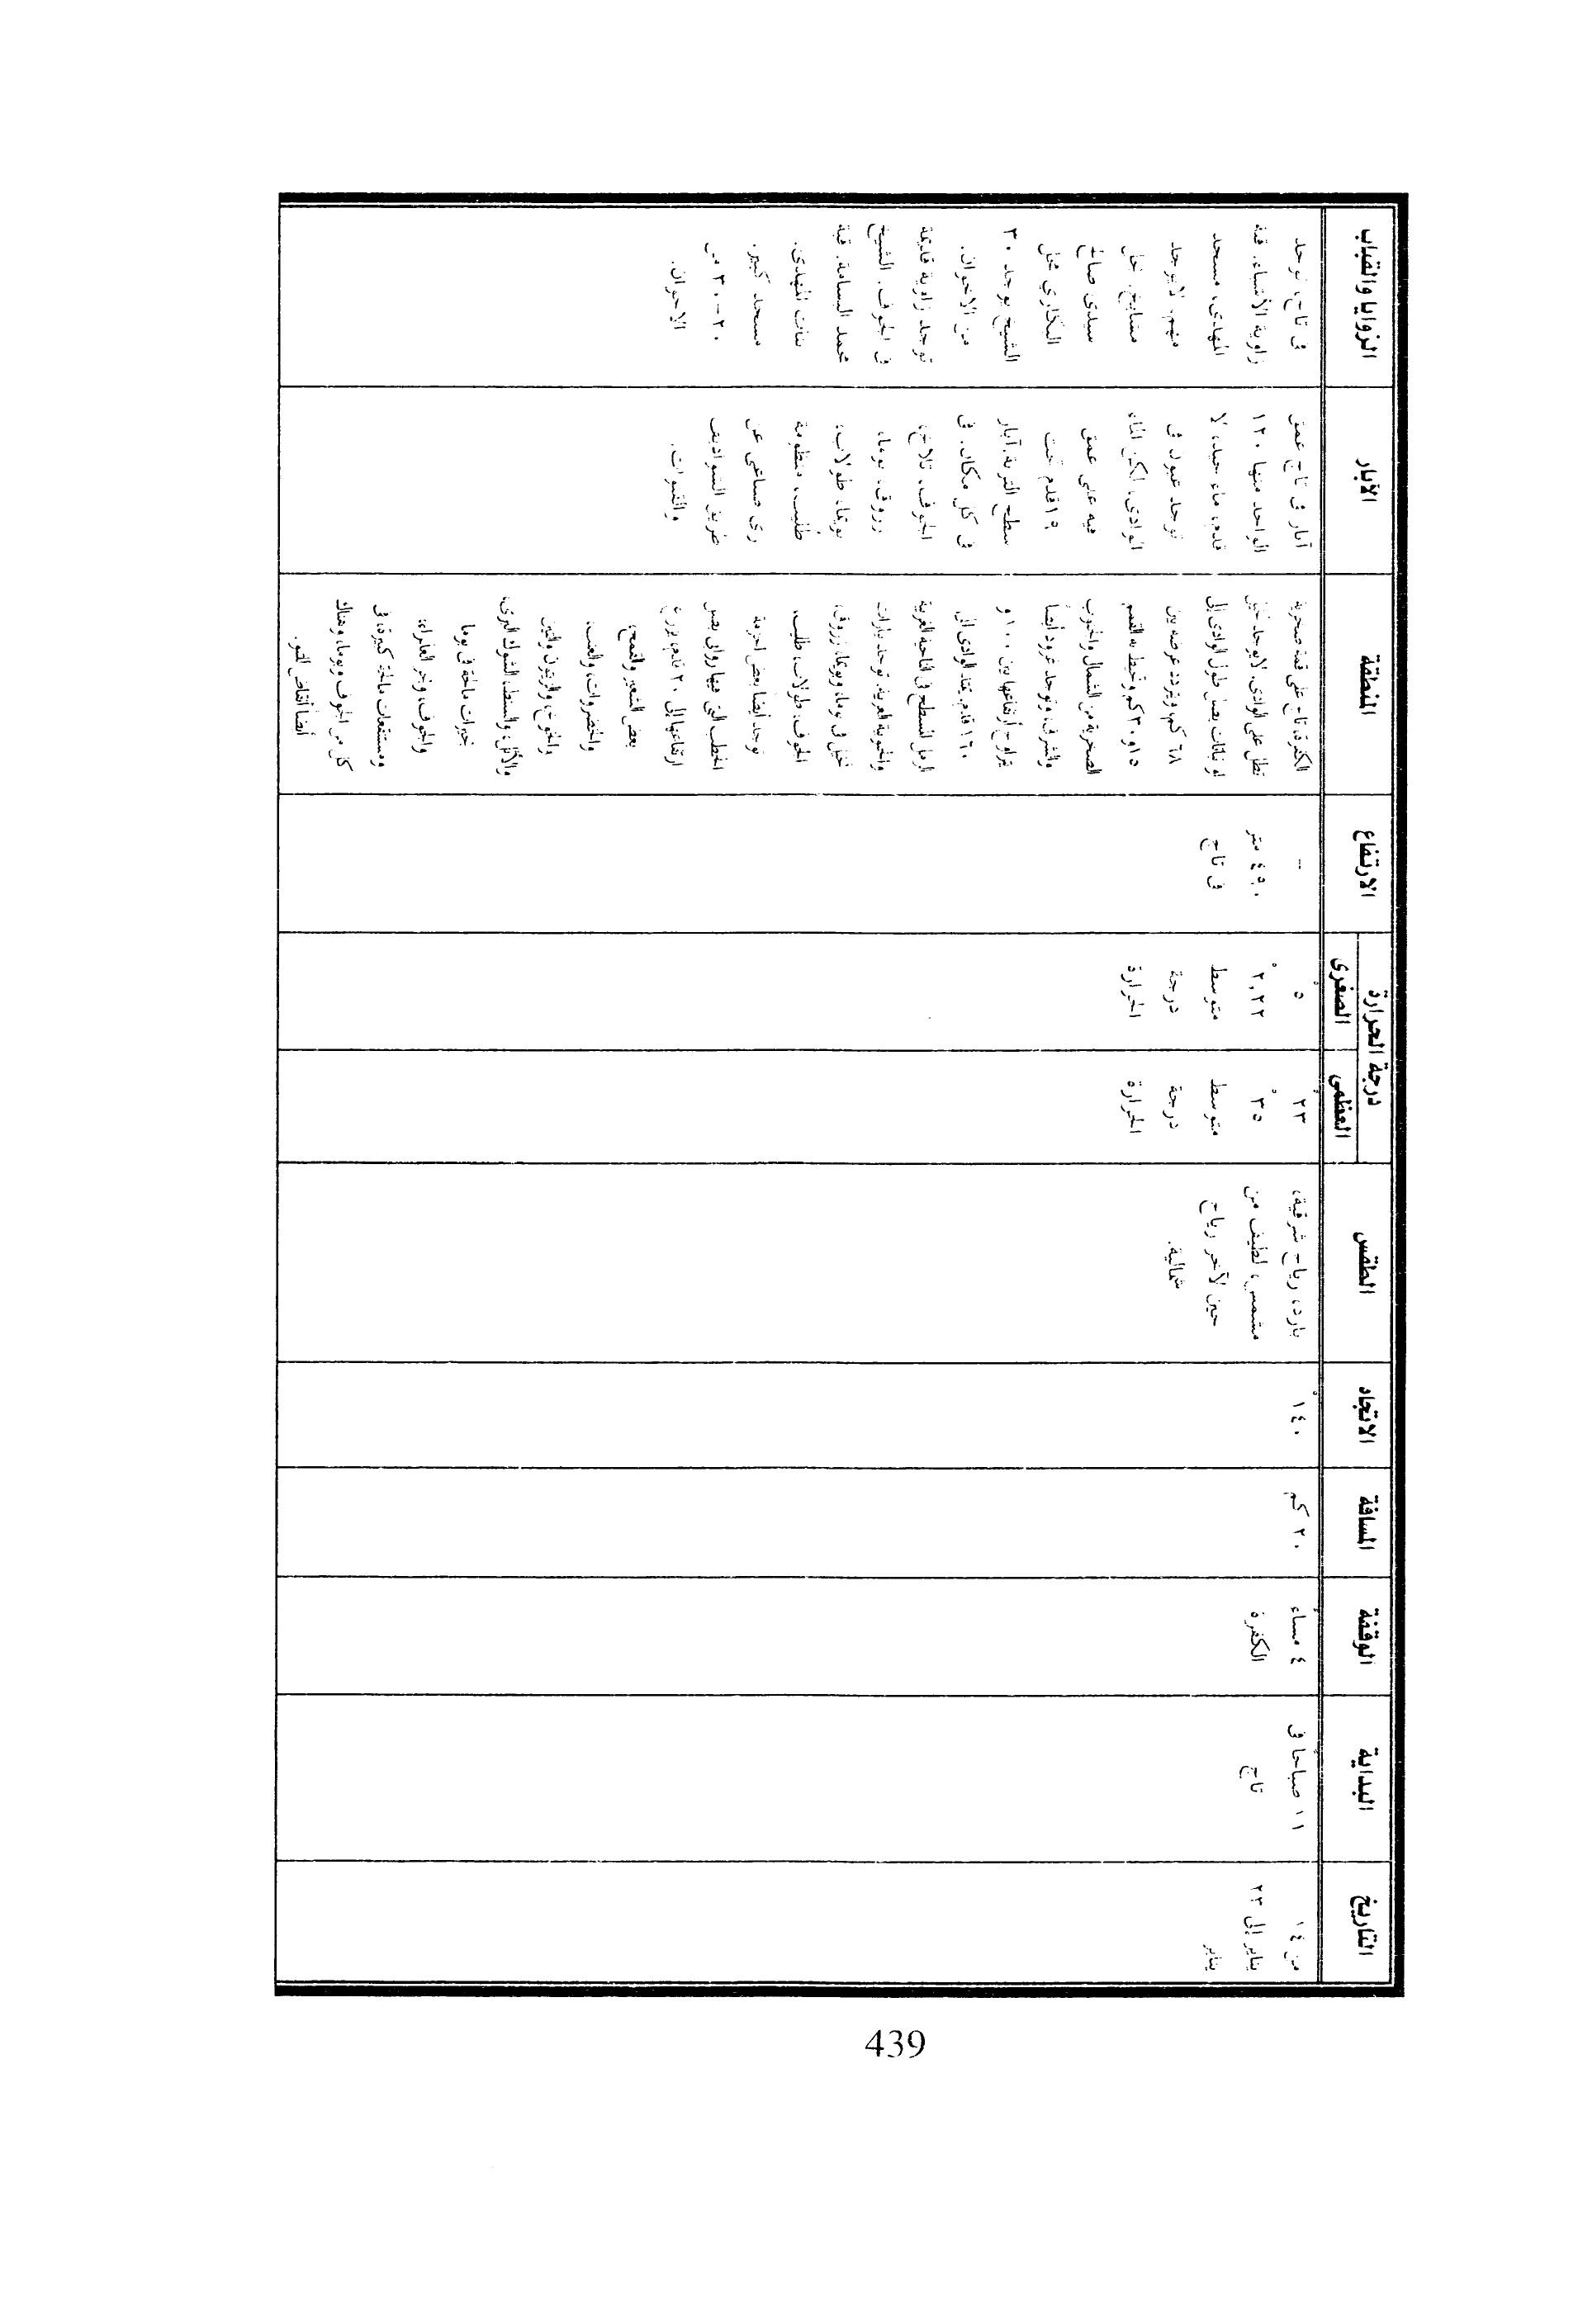 التاريخ
البداية
الوقفة
المسافة
الاتجاه
الطقس
درجة الحرارة
العظمى
الصغرى
الارتفاع
المنطقة
الآبار
الزوايا والقباب
من ١٤
يناير إلى ٢٣
يناير
١١ صباحاً في
تاج
٤ مساءً
الكفرة
٢٠ كم
١٤٠°
بارد، رياح شرقية،
مشمس، لطيف من
حين لآخر رياح
شمالية.
٢٣°
٣٥°
متوسط
درجة
الحرارة
٥°
٢,٢٢°
متوسط
درجة
الحرارة
--
٤٩٠ متر
في تاج
الكفرة، تاج على قمة صخرية
تطل على الوادى. لايوجد نخيل
أو نباتات يصل طول الوادى إلى
٦٨ كم، ويتردد عرضه بين
١٥و٣٠ كم وتحيط به القمم
الصخرية من الشمال والجنوب
والشرق، وتوجد غرود أيضاً
يتراوح إرتفاعها بين ١٠٠ و
١٦٠ قدم. يمتد الوادى الى
الرمل المسطح فى الناحية الغربية
والجنوبية الغربية. توجد
نخيل فى بوما، وبويما، زروق،
الجوف، طولاب، طليب،
توجد أيضاً بعض أحزمة
الحطب التى فيها روالى يصل
ارتفاعها إلى ٢٠ قدم، يزرع
بعض الشعير والقمح،
والخضروات، والعنب،
والخوخ، والزيتون والتين
والأثل، والسنط، الشوك البرى،
بحيرات مالحة فى بوما
والجوف، وبحر العذراء،
ومستنقعات مالحة كبيرة، فى
كل من الجوف وبوما، وهناك
أيضاً أنقاض التبو.
آبار فى تاج عمق
الواحد منها ١٢٠
قدم، ماء جيد، لا
توجد عيون فى
الوادى، لكن الماء
فيه على عمق
١٩قدم تحت
سطح التربة. آبار
فى كل مكان. فى
الجوف، تلاخ،
زروق، بوما،
بويما، طولاب،
طليب، منظومة
رى صناعى عن
طريق الشواديف
والقنوات.
فى تاج، توجد
زاوية الأنساء، قبة
المهدى، مسجد
مهم. لايوجد
مشايخ. نجل
سيدى صالح
البكارى محل
الشيخ يوجد ٣٠
من الاخوان.
توجد زاوية قديمة
فى الجوف. الشيخ
محمد البسامة، قبة
بنات المهدى،
مسجد كبير.
٢٠-٣٠ من
الاخوان.
439